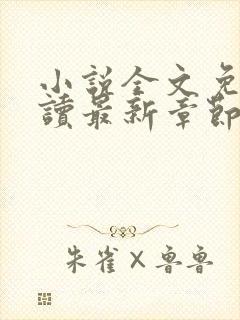 小說全文免
讀最新章節
朱雀×魯魯